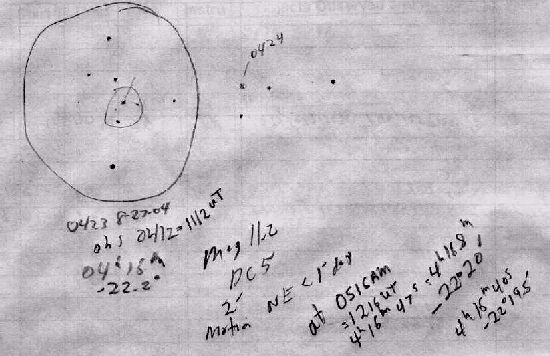 0424
0423 8-27-04
obs 0412=1112 UT
04ʰ 16ᵐ
-22.2°
mag 11.2
DC 5
2'
motion NE <1°
at 0516AM
=1216 UT
4ʰ 16ᵐ 47ˢ = 4ʰ 16.8ᵐ
-22°20'
4ʰ 16ᵐ 40s
-22°19.5'